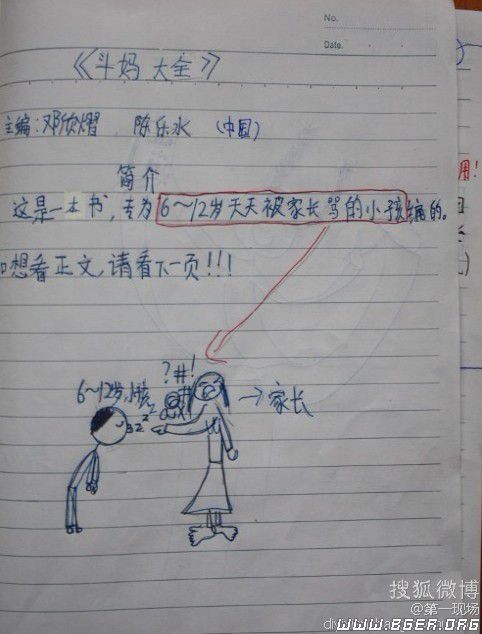 No.
Date.
《斗妈 大全》
主编:邓欣熠 陈乐水 (中国)
简介
这是一本书,专为6~12岁天天被家长骂的小孩编的。
想看正文,请看下一页!!!
?#!
6~12岁小孩
zzz
→家长
用!
搜狐微博
@第一现场
WWW.BGER.ORG